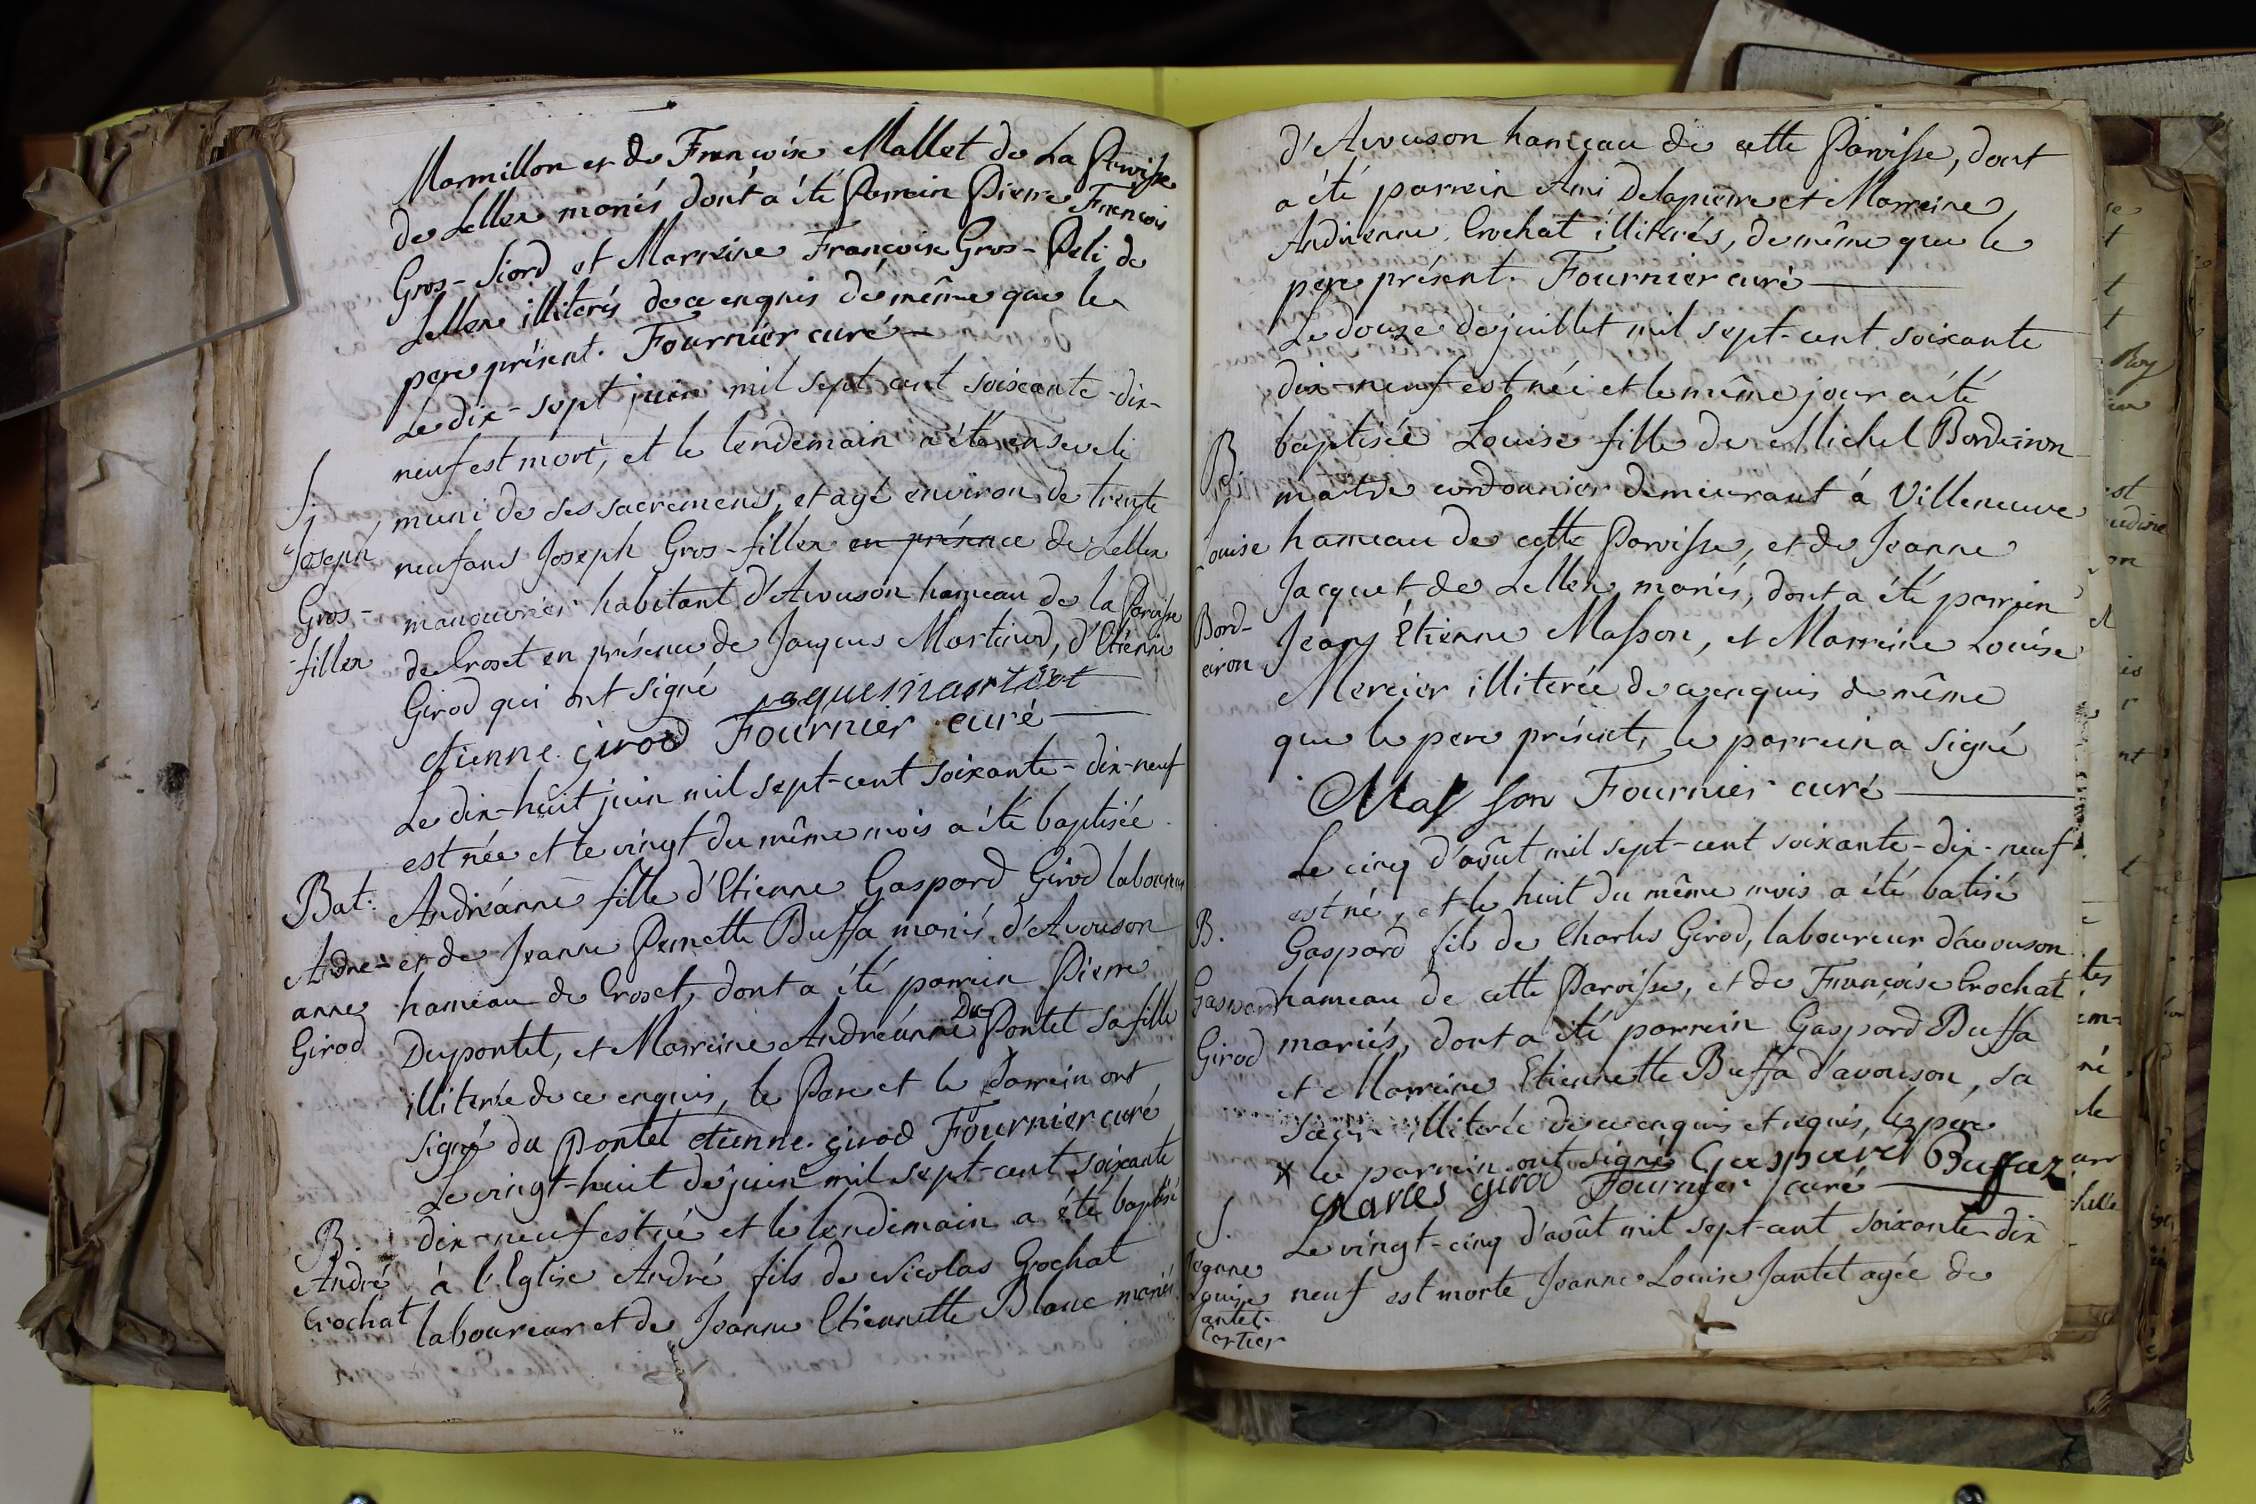 Marmillon et de Françoise Mallet de La Paroisse
de Lellex mariés dont a été Parrein Pierre François
Gros-Siord et Marreine Françoise Gros-Peli de
Lellex illiterés de ce enquis de même que le
pere présent. Fournier curé
Le dix-sept juin mil sept cent soixante-dix-
neuf est mort, et le lendemain a été enseveli
muni de ses sacremens, et agé environ de trente
neuf ans Joseph Gros-fillex en présence de Lellex
manouvrier habitant d'Avouson hameau de la Paroisse
de Croset en présence de Jacques Martinod, d'Etienne
Girod qui ont signé
etienne girod Fournier curé
S.
Joseph
Gros-
fillex
Le dix-huit juin mil sept-cent soixante-dix-neuf
est née et le vingt du même mois a été baptisée
Andréanne fille d'Etienne Gaspard Girod laboureur
et de Jeanne Pernette Buffa mariés d'Avouson
hameau de Croset, dont a été parrein Pierre
Dupontet, et Marreine Andréanne Du Pontet sa fille
illiterée de ce enquis, le Pere et le Parrein ont
signé du Pontet etienne girod Fournier curé
Bat:
Andre-
anne
Girod
Le vingt-huit de juin mil sept-cent soixante
dix-neuf est né et le lendemain a été baptisé
à l'Eglise André fils de Nicolas Crochat
laboureur et de Jeanne Etiennette Blanc mariés
B.
André
Crochat
d'Avouson hameau de cette Paroisse, dont
a été parrein Ami Delapierre et Marreine
Andrienne Crochat illiterés, de même que le
pere présent. Fournier curé
Le douze de juillet mil sept-cent soixante
dix-neuf est née et le même jour a été
baptisée Louise fille de Michel Bordeiron
maitre cordonnier demeurant à Villeneuve
hameau de cette Paroisse, et de Jeanne
Jacquet de Lellex mariés, dont a été parrein
Jean Etienne Masson, et Marreine Louise
Mercier illiterée de ce enquis de même
que le pere présent, le parrein a signé
Masson Fournier curé
B.
Louise
Bord-
eiron
Le cinq d'août mil sept-cent soixante-dix-neuf
est né, et le huit du même mois a été batisé
Gaspard fils de Charles Girod, laboureur d'avouson
hameau de cette Paroisse, et de Françoise Crochat
mariés, dont a été parrein Gaspard Buffa
et Marreine Etiennette Buffa d'avouson, sa
sœur illiterée de ce enquis et requis, les pere
* le parrein ont signé Gaspard Buffaz
charles girod Fournier curé
B.
Gaspard
Girod
Le vingt-cinq d'août mil sept-cent soixante dix
neuf est morte Jeanne Louise Jantet agée de
S.
Jeanne
Louise
Jantet.
Cartier